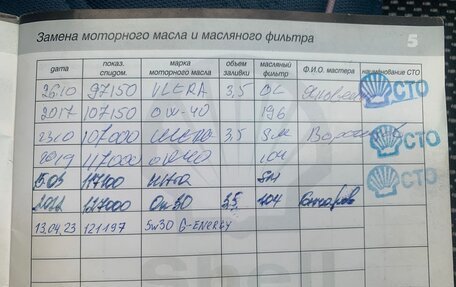 Замена моторного масла и масляного фильтра 5
дата показ. спидом. марка моторного масла объем заливки масляный фильтр Ф.И.О. мастера наименование СТО
26.10 97150 ULTRA 3,5 OC СТО
2017 107150 OW-40 196
23.10 107000 3,5 SM СТО
2019 117000 OW40 104
15.03 117100 SM СТО
2022 127000 OW30 3,5 104
13.04.23 121197 5W30 G-ENERGY
Shell